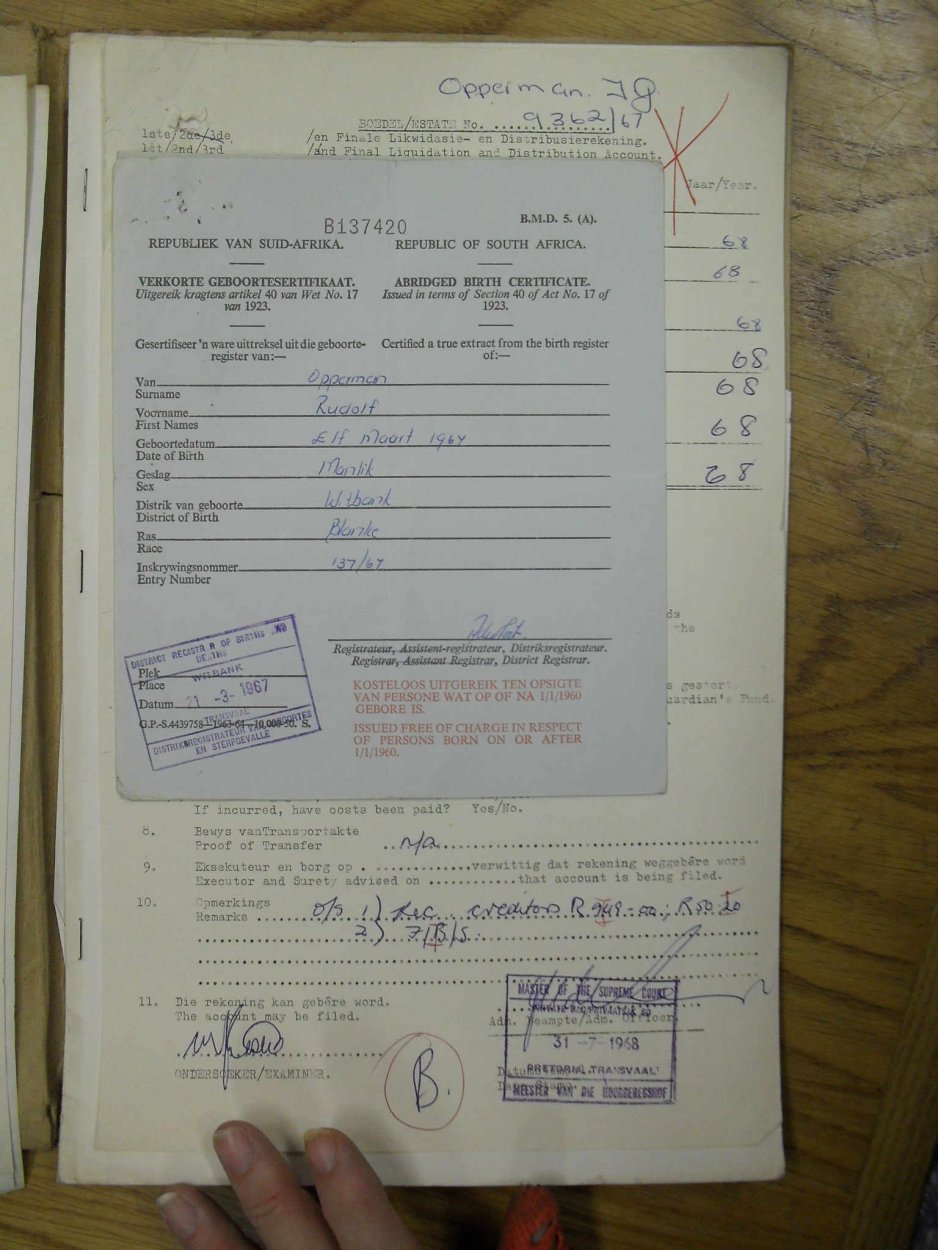 Opperman. J G
BOEDEL/ESTATE No. ....... 9362/67
1ste/2de/3de /en Finale Likwidasie- en Distribusierekening.
1st/2nd/3rd /and Final Liquidation and Distribution Account.
Jaar/Year.
68
68
68
68
68
68
68
B137420
B.M.D. 5. (A).
REPUBLIEK VAN SUID-AFRIKA. REPUBLIC OF SOUTH AFRICA.
VERKORTE GEBOORTESERTIFIKAAT. ABRIDGED BIRTH CERTIFICATE.
Uitgereik kragtens artikel 40 van Wet No. 17 Issued in terms of Section 40 of Act No. 17 of
van 1923. 1923.
Gesertifiseer 'n ware uittreksel uit die geboorte- Certified a true extract from the birth register
register van:— of:—
Van Opperman
Surname
Voorname Rudolf
First Names
Geboortedatum Elf Maart 1967
Date of Birth
Geslag Manlik
Sex
Distrik van geboorte Witbank
District of Birth
Ras Blanke
Race
Inskrywingsnommer 137/67
Entry Number
Registrateur, Assistent-registrateur, Distriksregistrateur.
Registrar, Assistant Registrar, District Registrar.
KOSTELOOS UITGEREIK TEN OPSIGTE
VAN PERSONE WAT OP OF NA 1/1/1960
GEBORE IS.
ISSUED FREE OF CHARGE IN RESPECT
OF PERSONS BORN ON OR AFTER
1/1/1960.
DISTRICT REGISTRAR OF BIRTHS AND
DEATHS
Plek WITBANK
Place
Datum 21 -3- 1967
TRANSVAAL
G.P.-S.4439758—1963-64—10,000-50. S.
DISTRIKSREGISTRATEUR VAN GEBOORTES
EN STERFGEVALLE
ds
the
s gestort.
uardian's Fund.
If incurred, have costs been paid? Yes/No.
8. Bewys vanTransportakte
Proof of Transfer .. n/a
9. Eksekuteur en borg op ..............verwittig dat rekening weggebêre word
Executor and Surety advised on ............that account is being filed.
10. Opmerkings
Remarks ....... o/s 1) Rec creditors R 949-00; R50.20
2) 7/B/S.
11. Die rekening kan gebêre word.
The account may be filed.
Adm. Beampte/Adm. Officer.
ONDERSOEKER/EXAMINER.
B.
MASTER OF THE SUPREME COURT
31 -7-1968
PRETORIA, TRANSVAAL
MEESTER VAN DIE HOOGGEREGSHOF